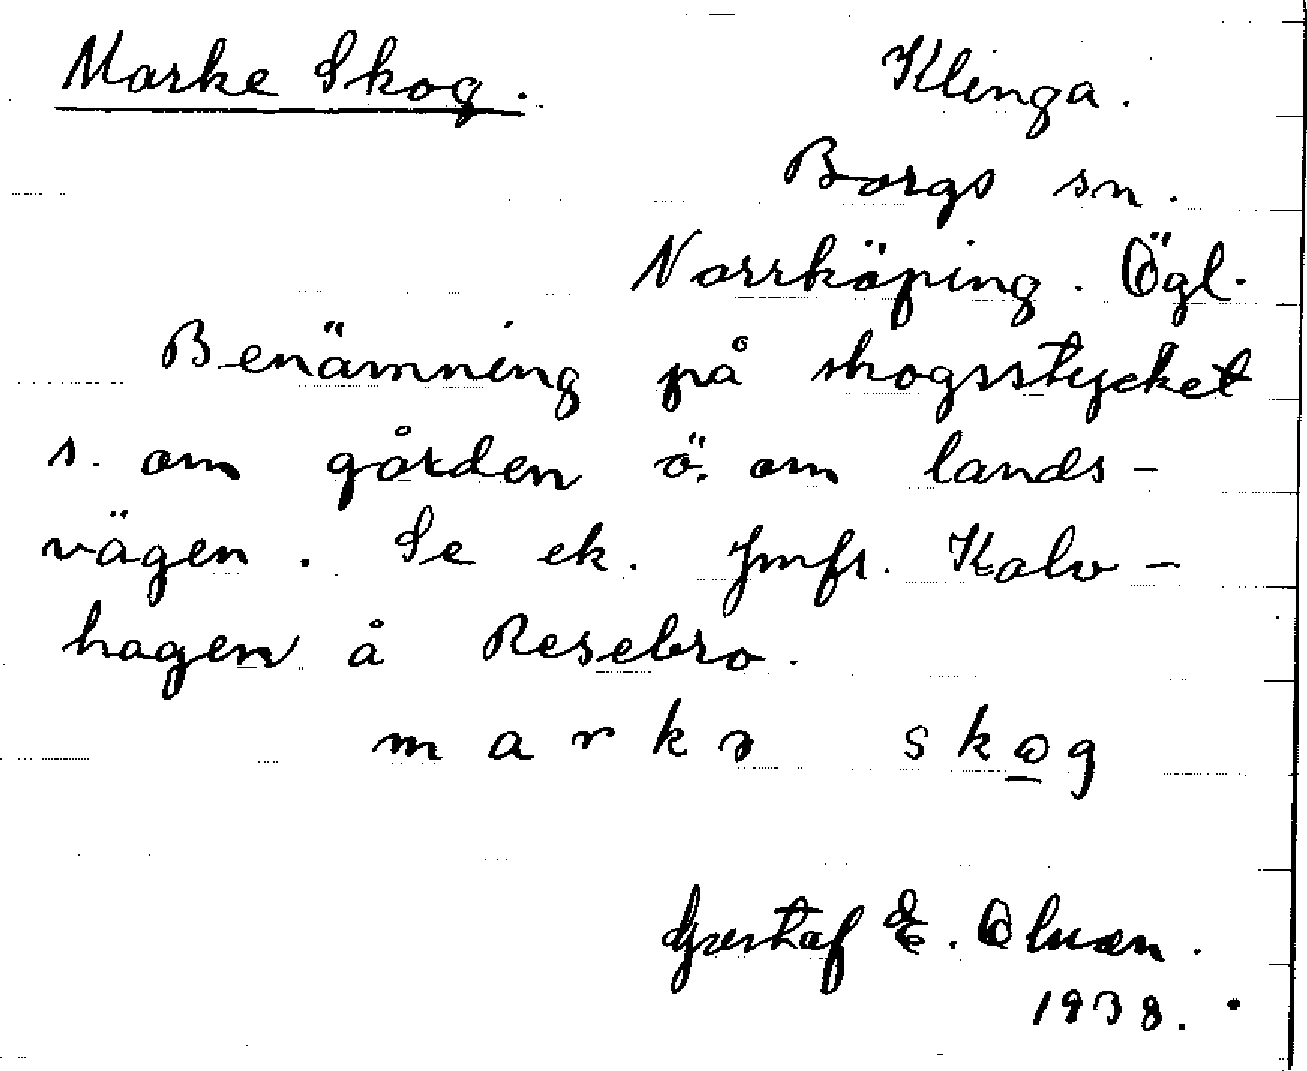 Marke Skog. Klinga.
Borgs sn.
Norrköping. Ögl.
Benämning på skogsstycket
s. om gården ö. om lands-
vägen. Se ek. Jmfr. Kalv-
hagen å Resebro.
markə skog
Gustaf E. Olson.
1938.